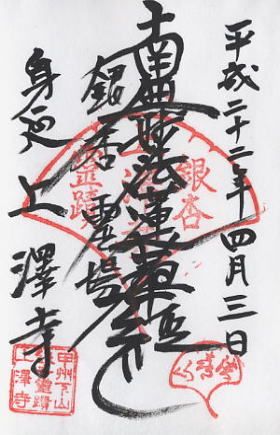 平成二十二年四月三日
南無妙法蓮華經
銀杏霊場
身延 上澤寺
銀杏
霊蹟
甲州下山
霊蹟
上澤寺